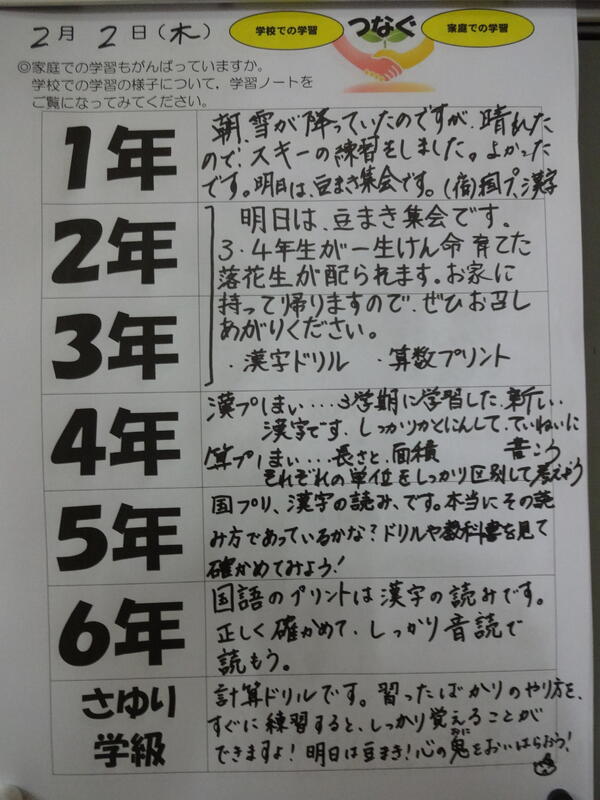 2月 2日(木)
学校での学習 つなぐ 家庭での学習
◎家庭での学習もがんばっていますか。
学校での学習の様子について，学習ノートを
ご覧になってみてください。
1年
朝、雪が降っていたのですが、晴れた
ので、スキーの練習をしました。よかった
です。明日は、豆まき集会です。(宿)国プ、漢字
2年
3年
明日は、豆まき集会です。
3・4年生が一生けん命 育てた
落花生が配られます。お家に
持って帰りますので、ぜひお召し
あがりください。
・漢字ドリル ・算数プリント
4年
漢プ1まい…3学期に学習した、新しい
漢字です。しっかりかくにんして、ていねいに
書こう
算プ1まい…長さと、面積
それぞれの単位をしっかり区別して考えよう
5年
国プリ、漢字の読み、です。本当にその読
み方であっているかな?ドリルや教科書を見て
確かめてみよう!
6年
国語のプリントは漢字の読みです。
正しく確かめて、しっかり音読で
読もう。
さゆり
学級
計算ドリルです。習ったばかりのやり方を、
すぐに練習すると、しっかり覚えることが
できますよ!明日は豆まき!心の鬼をおいはらおう!
おに